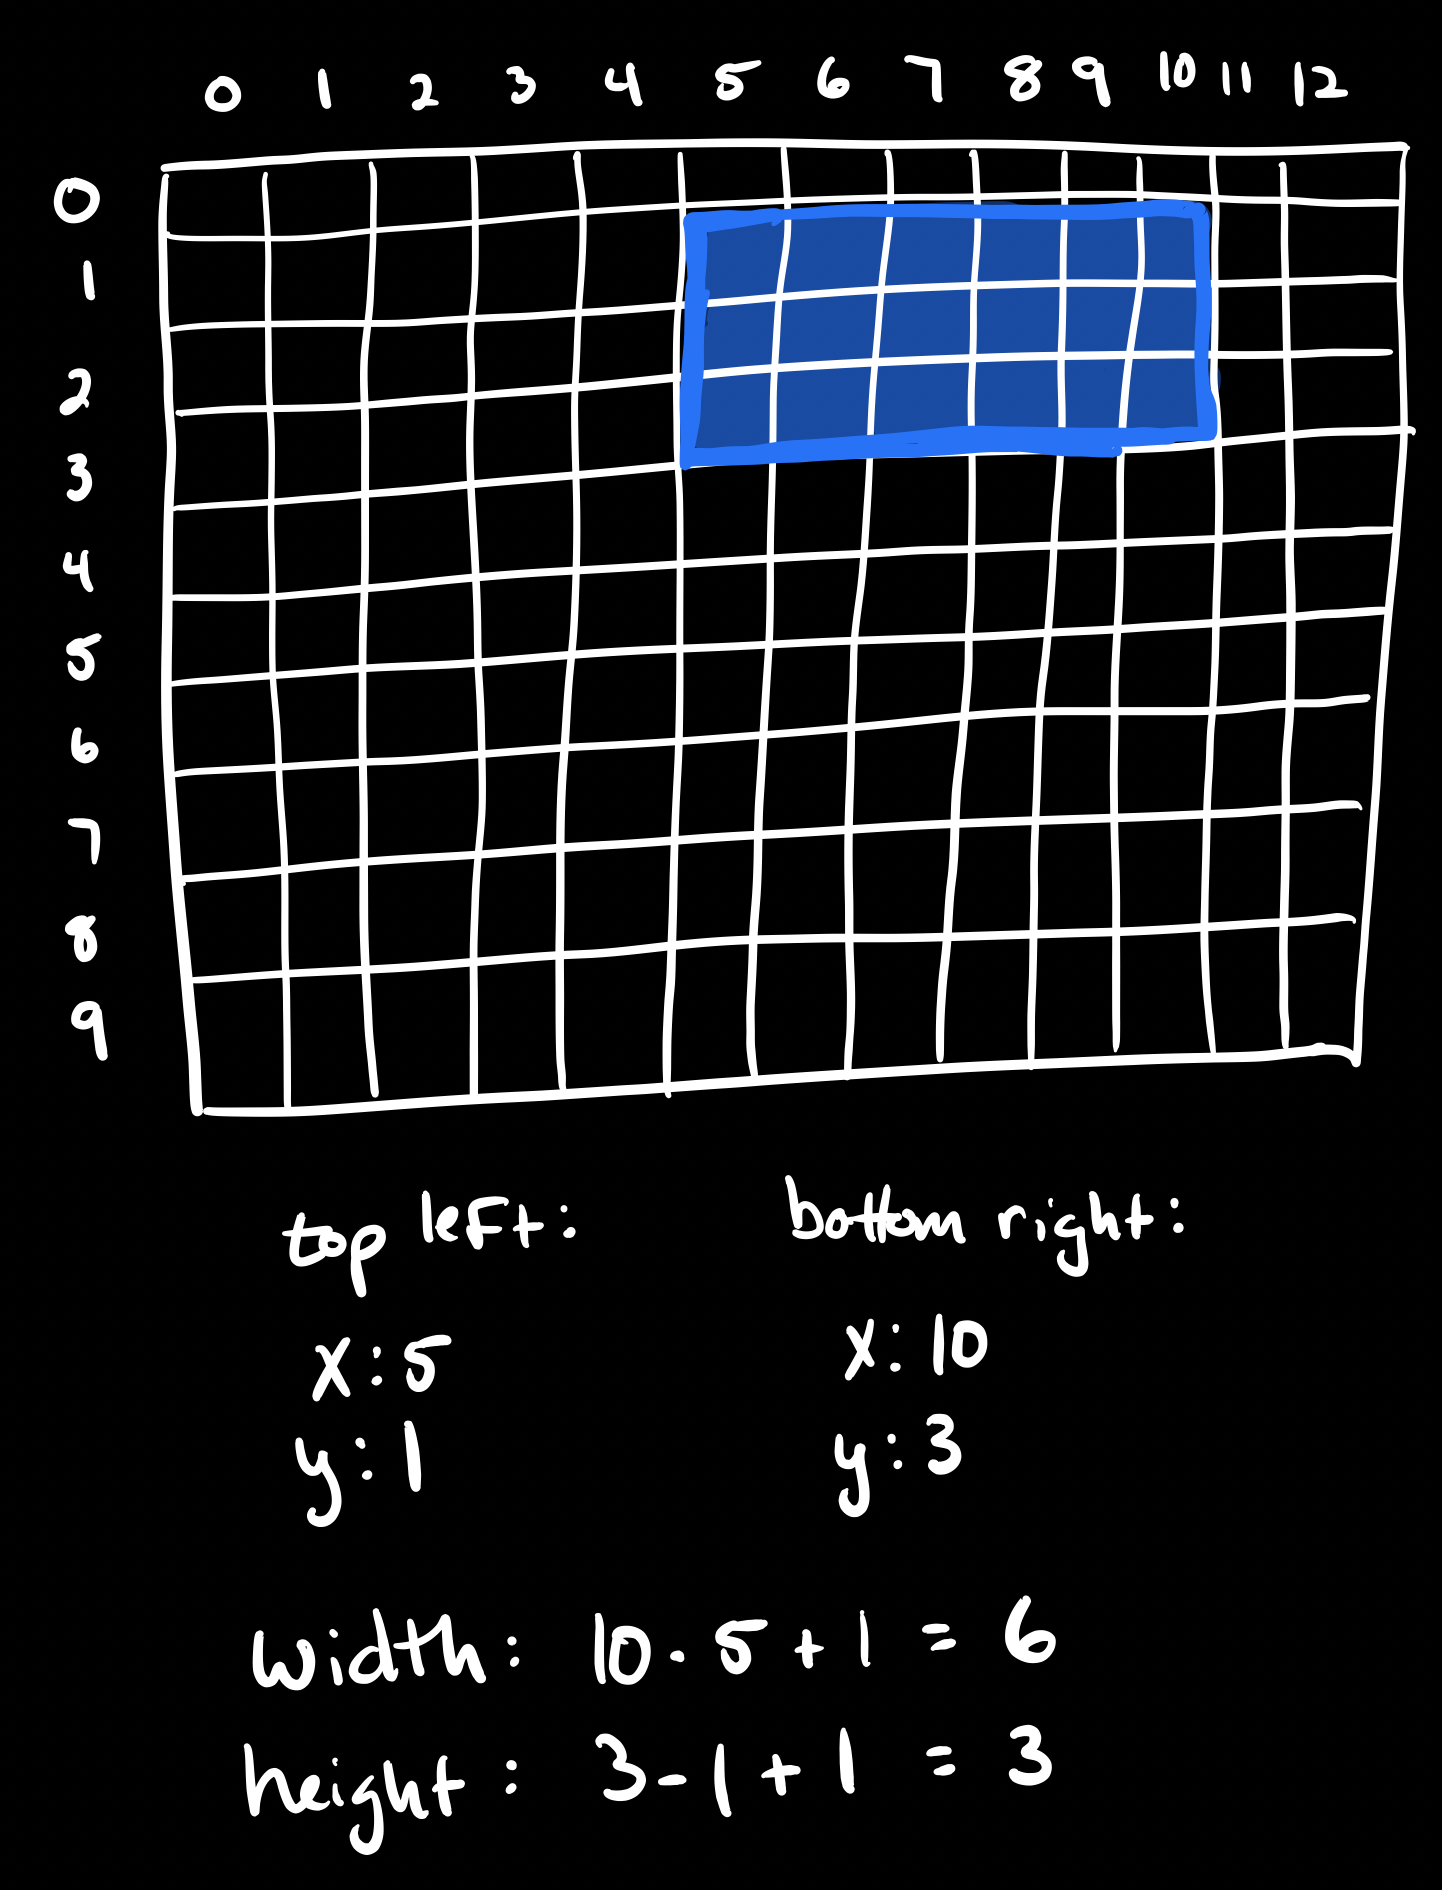 0 1 2 3 4 5 6 7 8 9 10 11 12
0
1
2
3
4
5
6
7
8
9
top left: bottom right:
x: 5 x: 10
y: 1 y: 3
width: 10 - 5 + 1 = 6
height: 3 - 1 + 1 = 3